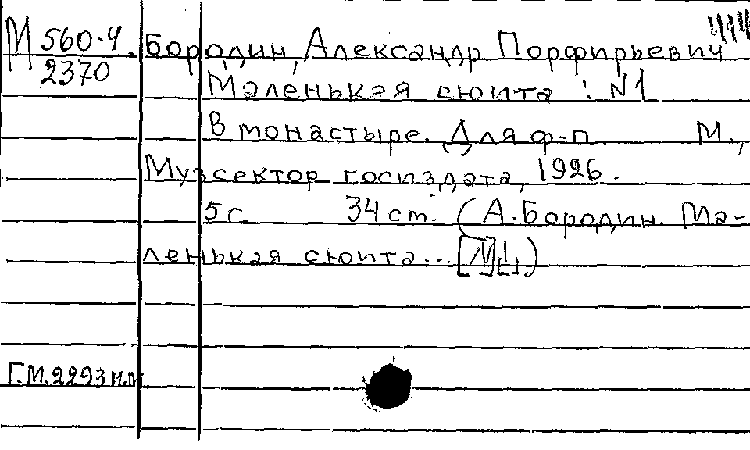 М 560-4. Бородин, Александр Порфирьевич
2370 Маленькая сюита : N1
В монастыре. Для ф-п. М.,
Музсектор госиздата, 1926.
5с 34 ст. (А. Бородин. Ма-
ленькая сюита... [N]1.)
Г.М.2293 н.м